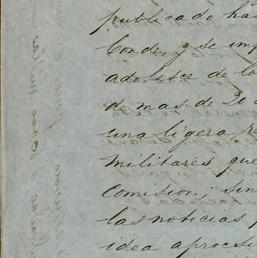 publicado has
Conde, y se imp
adolesce de lo
de mas de 20 a
una ligera re
militares que
Comision; sin
las noticias p
idea aprocsi